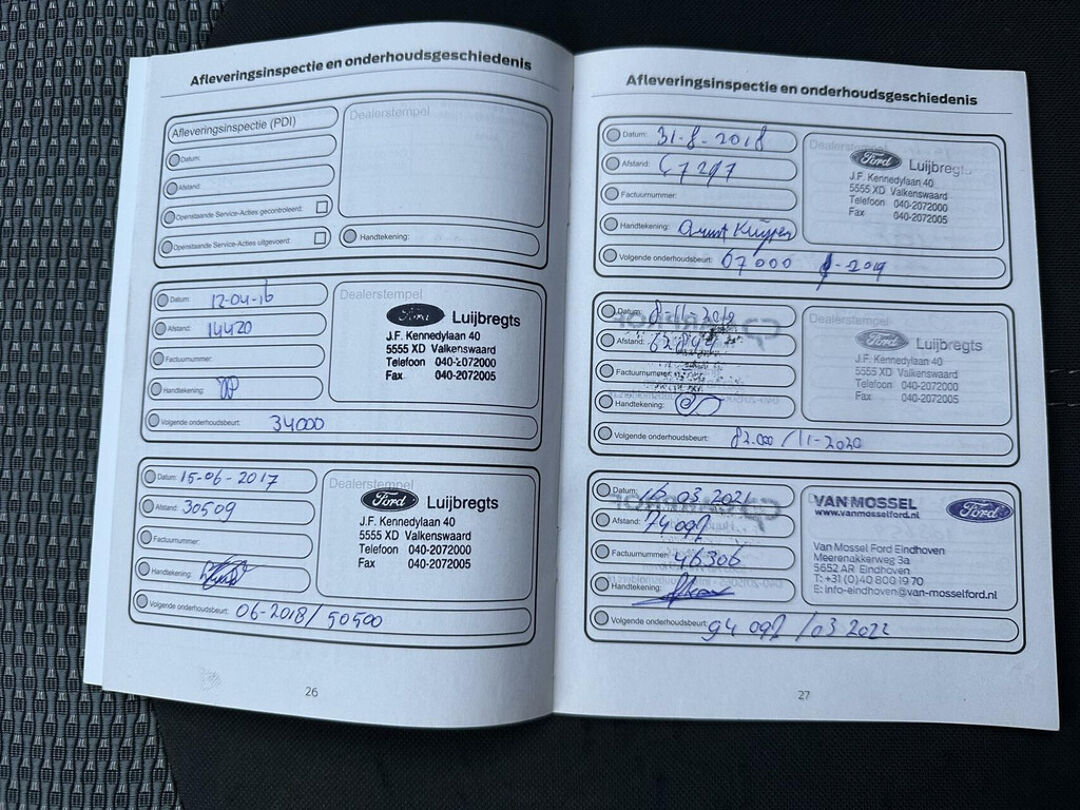 Afleveringsinspectie en onderhoudsgeschiedenis
Afleveringsinspectie (PDI)
Datum:
Afstand:
Openstaande Service-Acties gecontroleerd:
Openstaande Service-Acties uitgevoerd:
Dealerstempel
Handtekening:
Datum: 12-04-16
Afstand: 14420
Factuurnummer:
Handtekening:
Volgende onderhoudsbeurt: 34000
Dealerstempel
Ford Luijbregts
J.F. Kennedylaan 40
5555 XD Valkenswaard
Telefoon 040-2072000
Fax 040-2072005
Datum: 15-06-2017
Afstand: 30509
Factuurnummer:
Handtekening:
Volgende onderhoudsbeurt: 06-2018/ 50500
Dealerstempel
Ford Luijbregts
J.F. Kennedylaan 40
5555 XD Valkenswaard
Telefoon 040-2072000
Fax 040-2072005
26
Afleveringsinspectie en onderhoudsgeschiedenis
Datum: 31-8-2018
Afstand: 47297
Factuurnummer:
Handtekening:
Volgende onderhoudsbeurt: 67000 -2019
Dealerstempel
Ford Luijbregts
J.F. Kennedylaan 40
5555 XD Valkenswaard
Telefoon 040-2072000
Fax 040-2072005
Datum: 8-11-2019
Afstand:
Factuurnummer:
Handtekening:
Volgende onderhoudsbeurt: 82.000 / 11-2020
Dealerstempel
Ford Luijbregts
J.F. Kennedylaan 40
5555 XD Valkenswaard
Telefoon 040-2072000
Fax 040-2072005
Datum: 16 03 2021
Afstand: 74 092
Factuurnummer: 46306
Handtekening:
Volgende onderhoudsbeurt: 94 092 / 03 2022
VAN MOSSEL Ford
www.vanmosselford.nl
Van Mossel Ford Eindhoven
Meerenakkerweg 3a
5652 AR Eindhoven
T: +31 (0)40 800 19 70
E: info-eindhoven@van-mosselford.nl
27